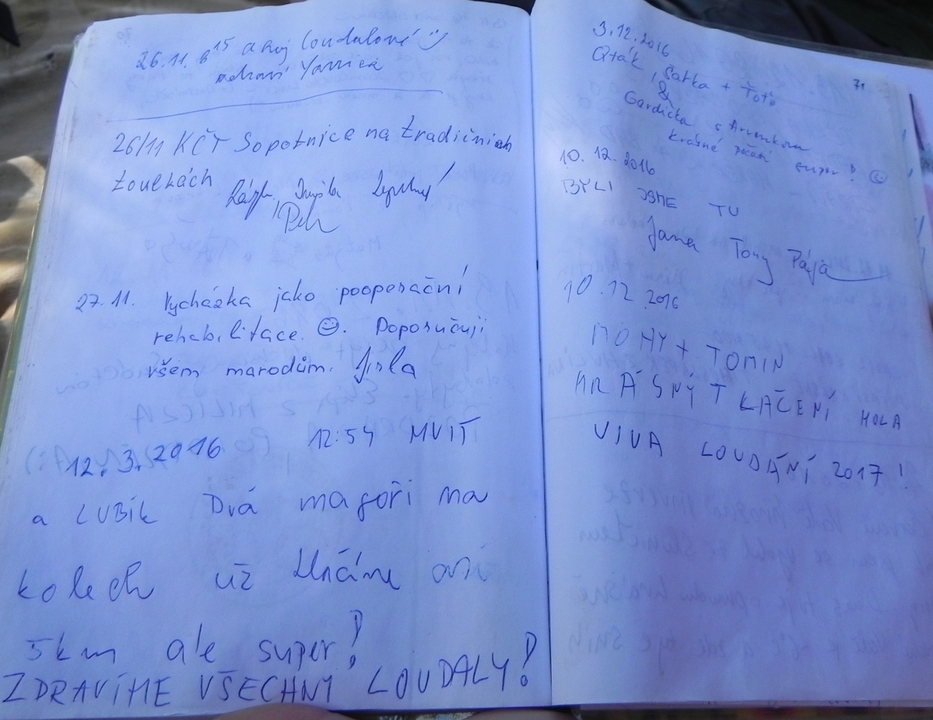 26.11. 8 15 ahoj Loudalové
zdraví
26/11 KČT Sopotnice na tradičních
toulkách
Petr
27.11. Vycházka jako pooperační
rehabilitace ☺. Doporučuji
všem marodům. Jirka
12.3.2016 12:54 MVIT
a LUBIK Dvá magoři na
kolech už asi
5km ale super!
ZDRAVÍME VŠECHNY LOUDALY!
71
3.12.2016
Šárka + Toto
&
krásné počasí super! ☺
10.12.2016
BYLI JSME TU
Jana Tony Pája
10.12 2016
MOMY + TOMIN
KAČENÍ
VIVA LOUDÁNÍ 2017!